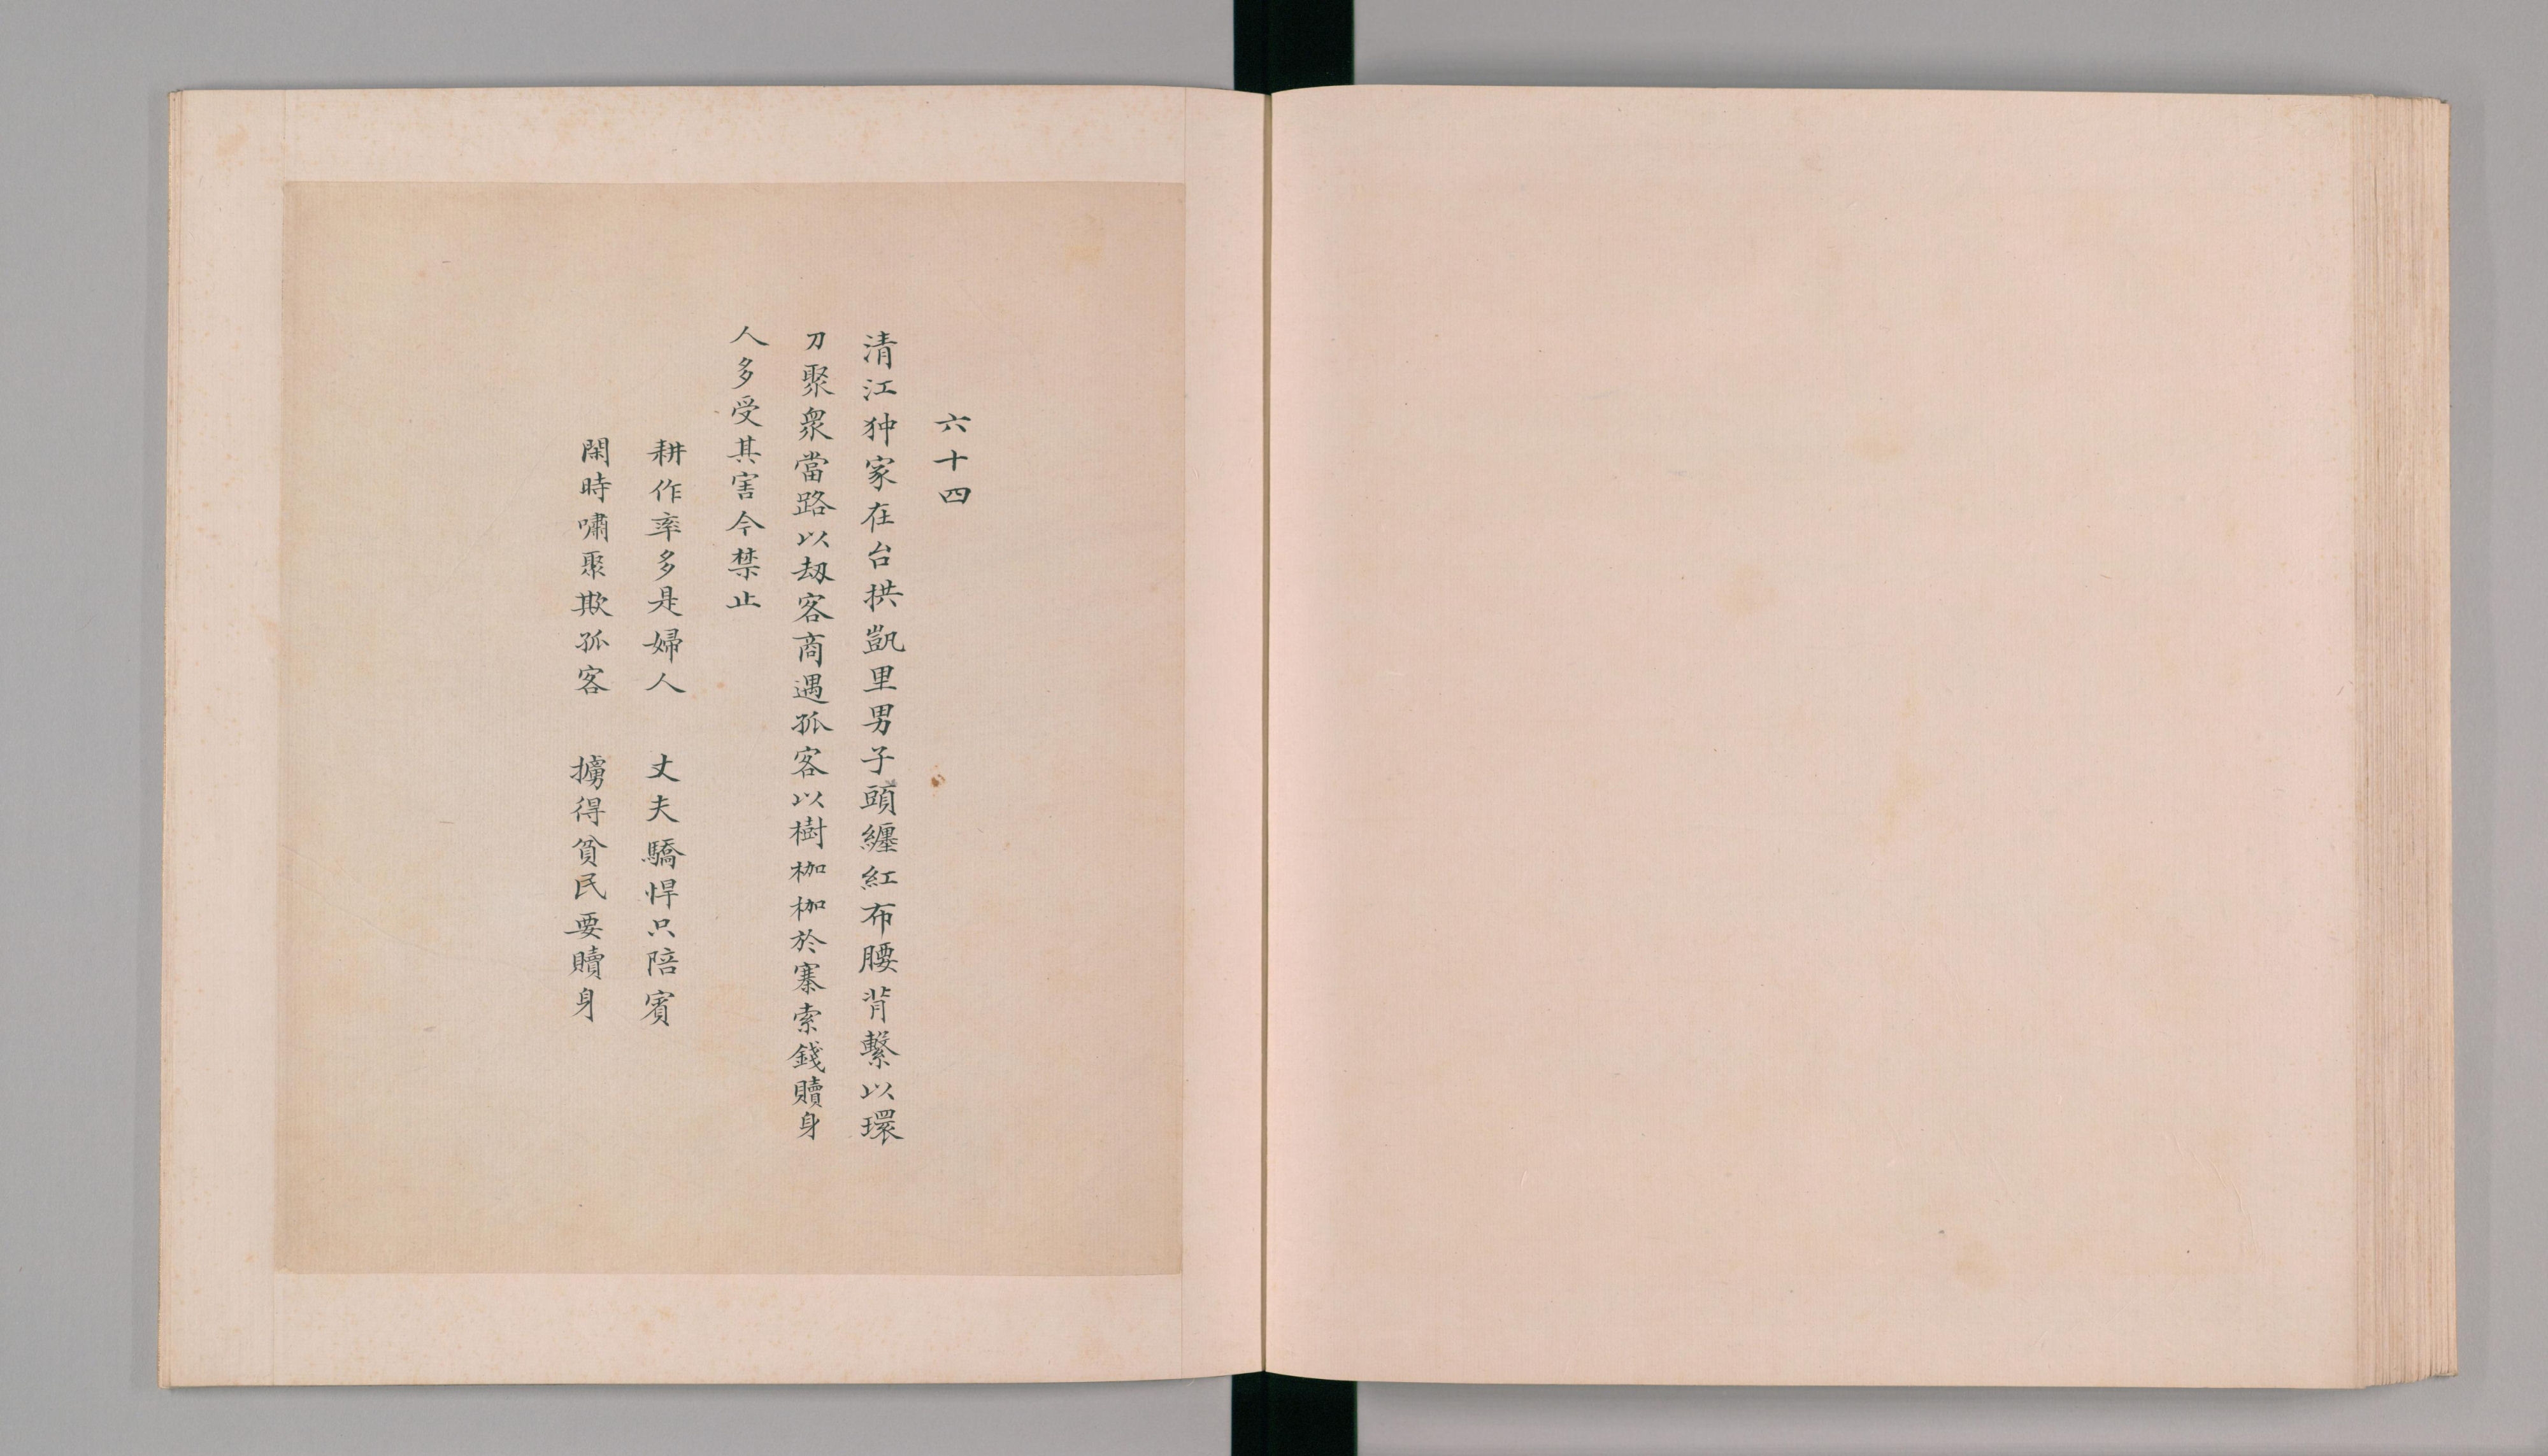 六十四
清江狆家在台拱凱里男子頭纏紅布腰背繫以環
刀聚衆當路以劫客商遇孤客以樹枷枷於寨索錢贖身
人多受其害今禁止
耕作率多是婦人　丈夫驕悍只陪賓
閑時嘯聚欺孤客　擄得貧民要贖身